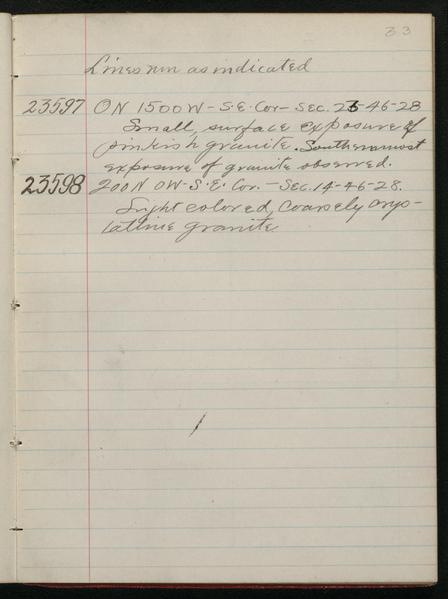 33
Lines run as indicated
23597 ON 1500W-S.E. Cor- SEC. 23-46-28
Small, surface exposure of
pinkish granite. Southernmost
exposure of granite observed.
23598 200N 0W-S.E. Cor. - SEC. 14-46-28.
Light colored, coarsely crys-
talline granite